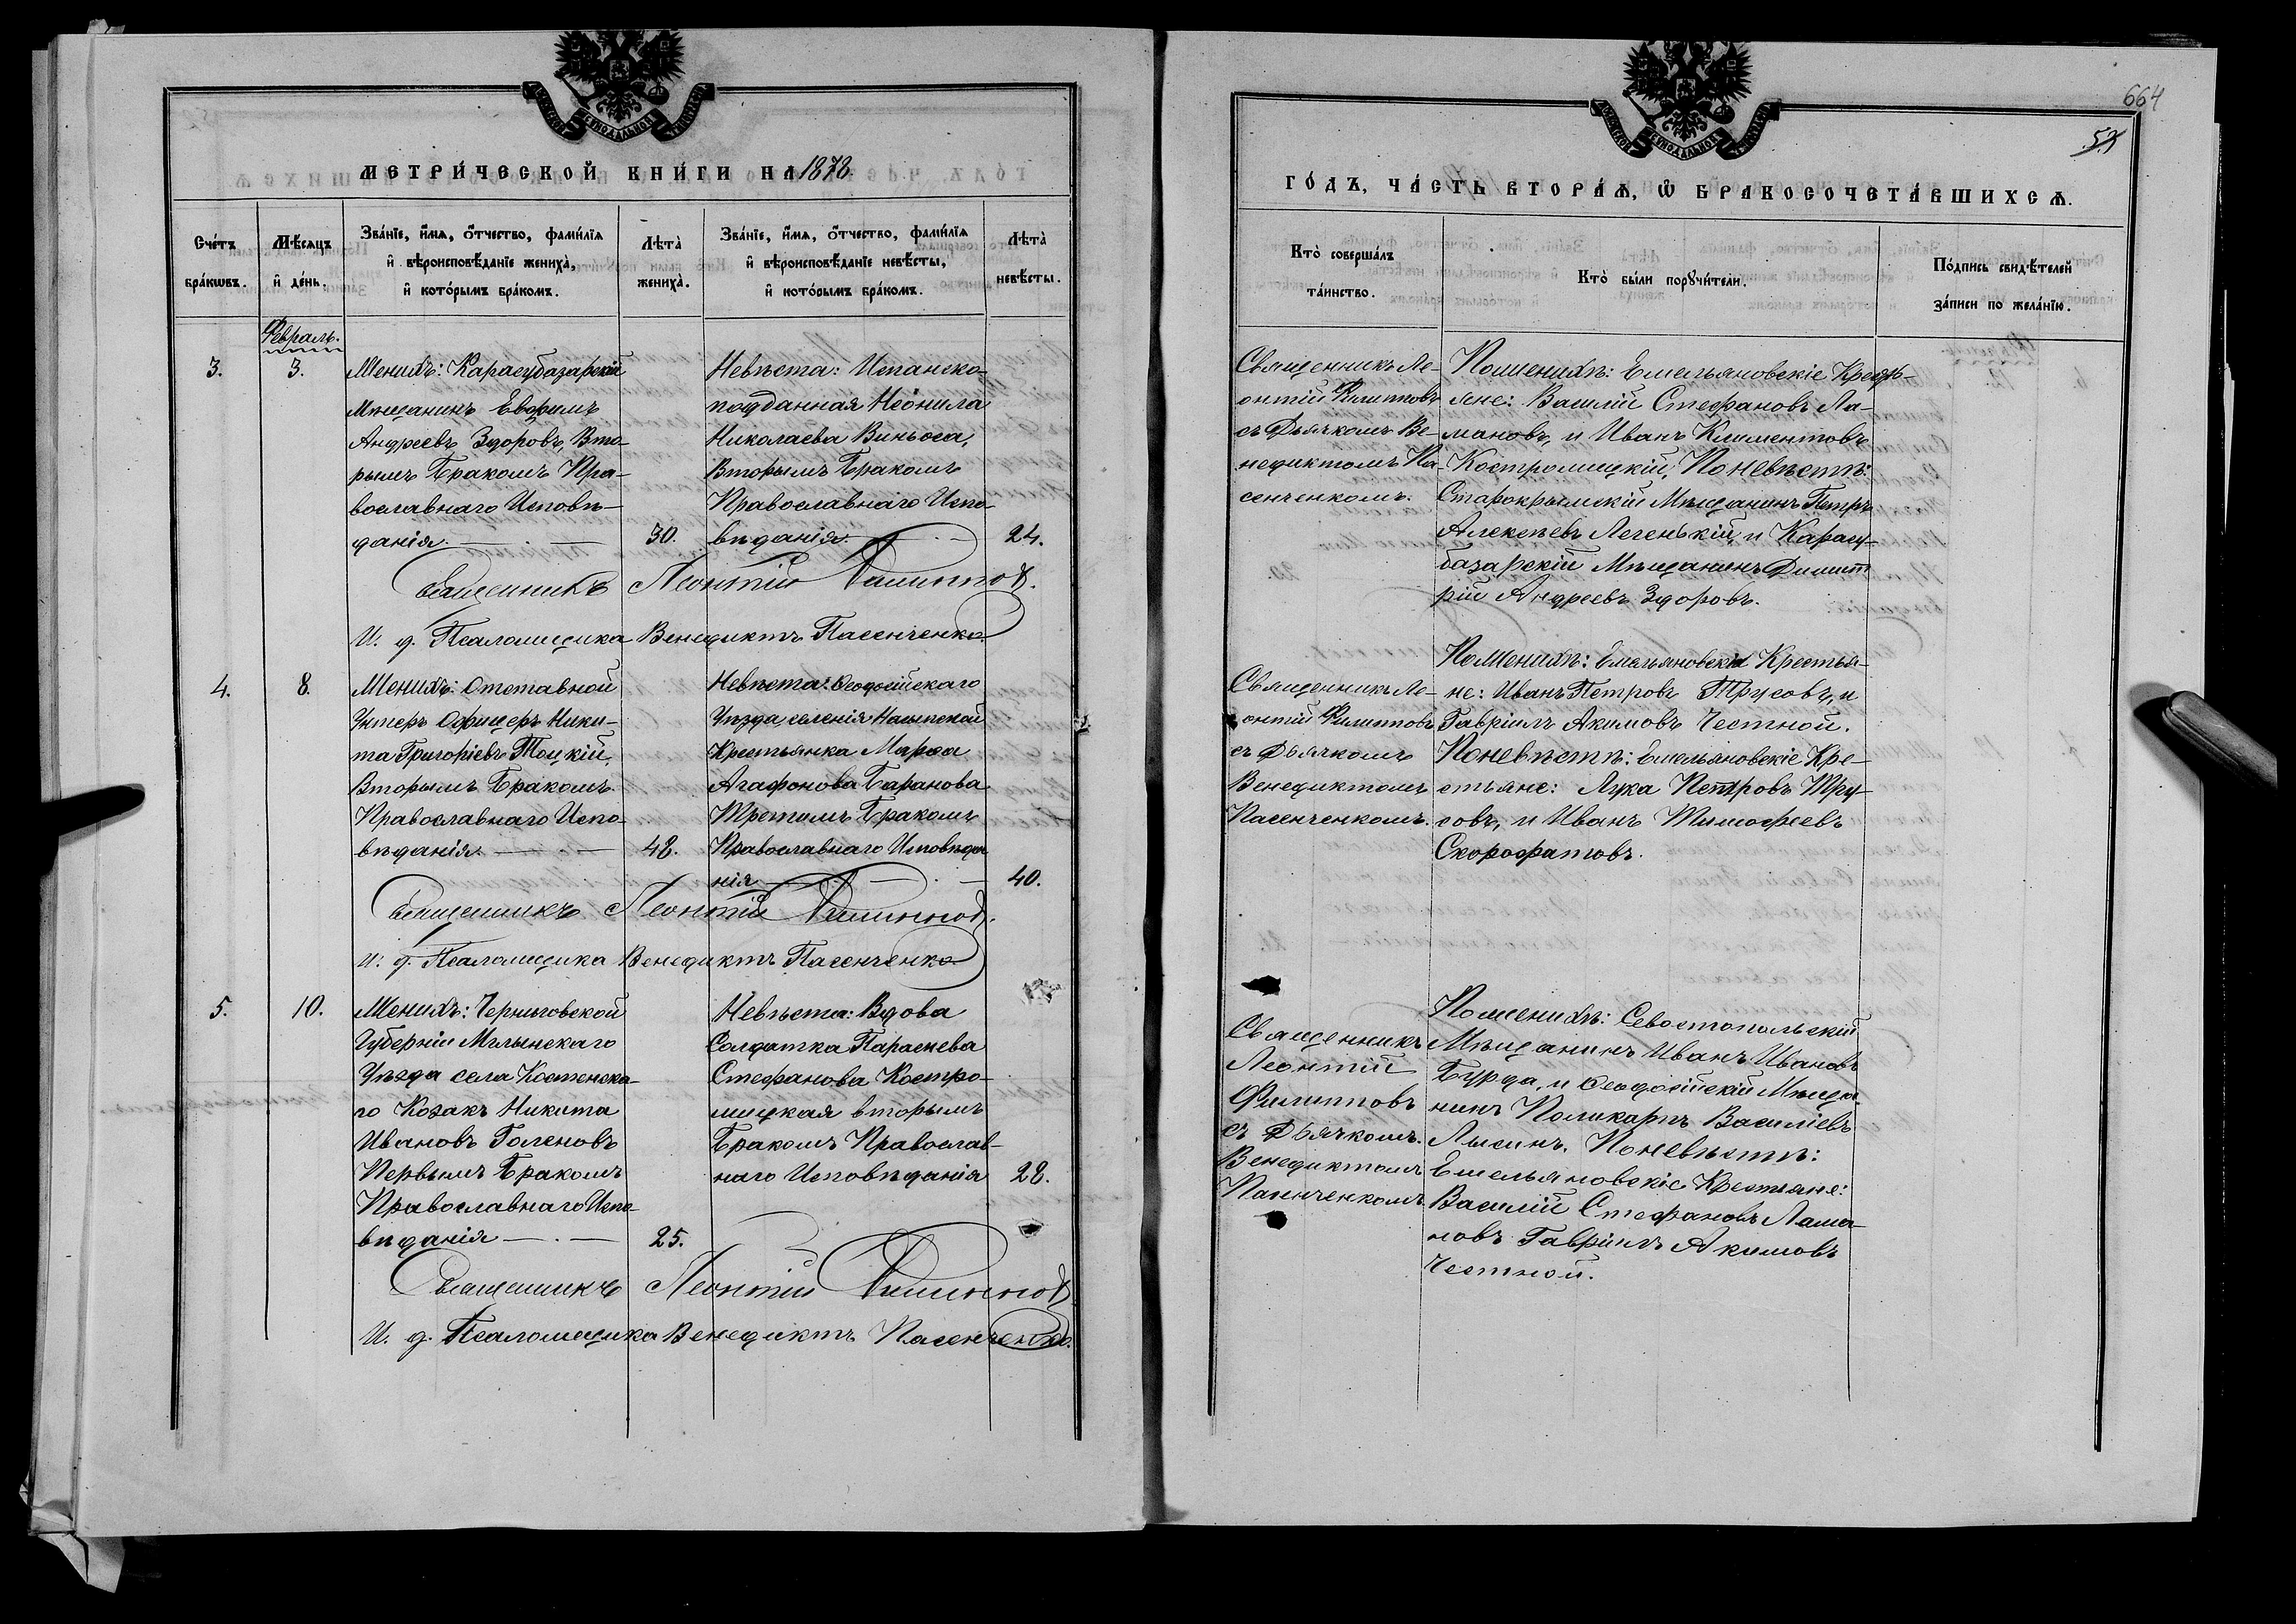 МЕТРИ́ЧЕСКОЙ КНИ́ГИ НА 1878.
Сче́тъ бра́кѡвъ.
Мѣ́сяцъ и де́нь.
Зва́нїе, и́мя, о́тчество, фами́лїя
и вѣроисповѣ́данїе жениха̀,
и кото́рымъ бра́комъ.
Лѣта̀ жениха̀.
Зва́нїе, и́мя, о́тчество, фами́лїя
и вѣроисповѣ́данїе невѣ́сты,
и кото́рымъ бра́комъ.
Лѣта̀ невѣ́сты.
Февраль.
3. 3.
Женихъ: Карасубазарскій
Мѣщанинъ Евфимъ
Андреевъ Здоровъ, Вто-
рымъ Бракомъ Пра-
вославнаго Исповѣ-
данія. 30.
Невѣста: Испанско-
подданная Неонила
Николаева Виньоса,
Вторымъ Бракомъ
Православнаго Испо-
вѣданія 24.
Священникъ Леонтій Филиппов.
И. д. Псаломщика Венедиктъ Пасенченко.
4. 8.
Женихъ: Отставной
Унтеръ Офицеръ Ники-
та Григоріевъ Тоцкій,
Вторымъ Бракомъ
Православнаго Испо-
вѣданія. 48.
Невѣста: Ѳеодосійскаго
Уѣзда селенія Насыпской
Крестьянка Марѳа
Агафонова Баранова
Третимъ Бракомъ
Православнаго Исповѣда
нія 40.
Священникъ Леонтій Филиппов.
И. д. Псаломщика Венедиктъ Пасенченко
5. 10.
Женихъ: Черниговской
Губерніи Мглынскаго
Уѣзда села Костенска-
го Козакъ Никита
Ивановъ Голеновъ
Первымъ Бракомъ
Православнаго Испо-
вѣданія 25.
Невѣста: Вдова
Солдатка Параскева
Стефанова Костро-
мицкая вторымъ
Бракомъ Православ-
наго Исповѣданія 28.
Священникъ Леонтій Филиппов
И. д. Псаломщика Венедиктъ Пасенченко.
664
ГО́ДЪ, ЧА́СТЬ ВТОРА́Ѧ, Ѡ БРАКОСОЧЕТА́ВШИХСѦ.
Кто̀ соверша́лъ
та́инство.
Кто̀ бы́ли порꙋчи́тели.
По́дпись свидѣ́телей
за́писи по жела́нїю.
Священникъ Ле-
онтій Филипповъ
съ Дьячкомъ Ве-
недиктомъ Па-
сенченкомъ.
Поженихѣ: Емельяновскіе Крестья-
яне: Василій Стефановъ Ла-
мановъ, и Иванъ Климентовъ
Костромицкій, Поневѣстѣ:
Старокрымскій Мѣщанинъ Петръ
Алексѣевъ Легенькій, и Карасу-
базарскій Мѣщанинъ Димит
рій Андреевъ Здоровъ.
Священникъ Ле-
онтій Филипповъ
съ Дьячкомъ
Венедиктомъ
Пасенченкомъ.
Поженихѣ: Емельяновскіе Крестья-
не: Иванъ Петровъ Трусовъ, и
Гавріилъ Акимовъ Честной.
Поневѣстѣ: Емельяновскіе Кре-
стьяне: Лука Петровъ Тру-
совъ, и Иванъ Тимофеевъ
Скорофатовъ.
Священникъ
Леонтій
Филипповъ
съ Дьячкомъ.
Венедиктомъ
Пасенченкомъ
Поженихѣ: Севостопольскій
Мѣщанинъ Иванъ Ивановъ
Бурда, и Ѳеодосійскій Мѣща-
нинъ Поликарпъ Василіевъ
Лысинъ. Поневѣстѣ:
Емельяновскіе Крестьяне:
Василій Стефановъ Лама-
новъ Гавріилъ Акимовъ
Честной.